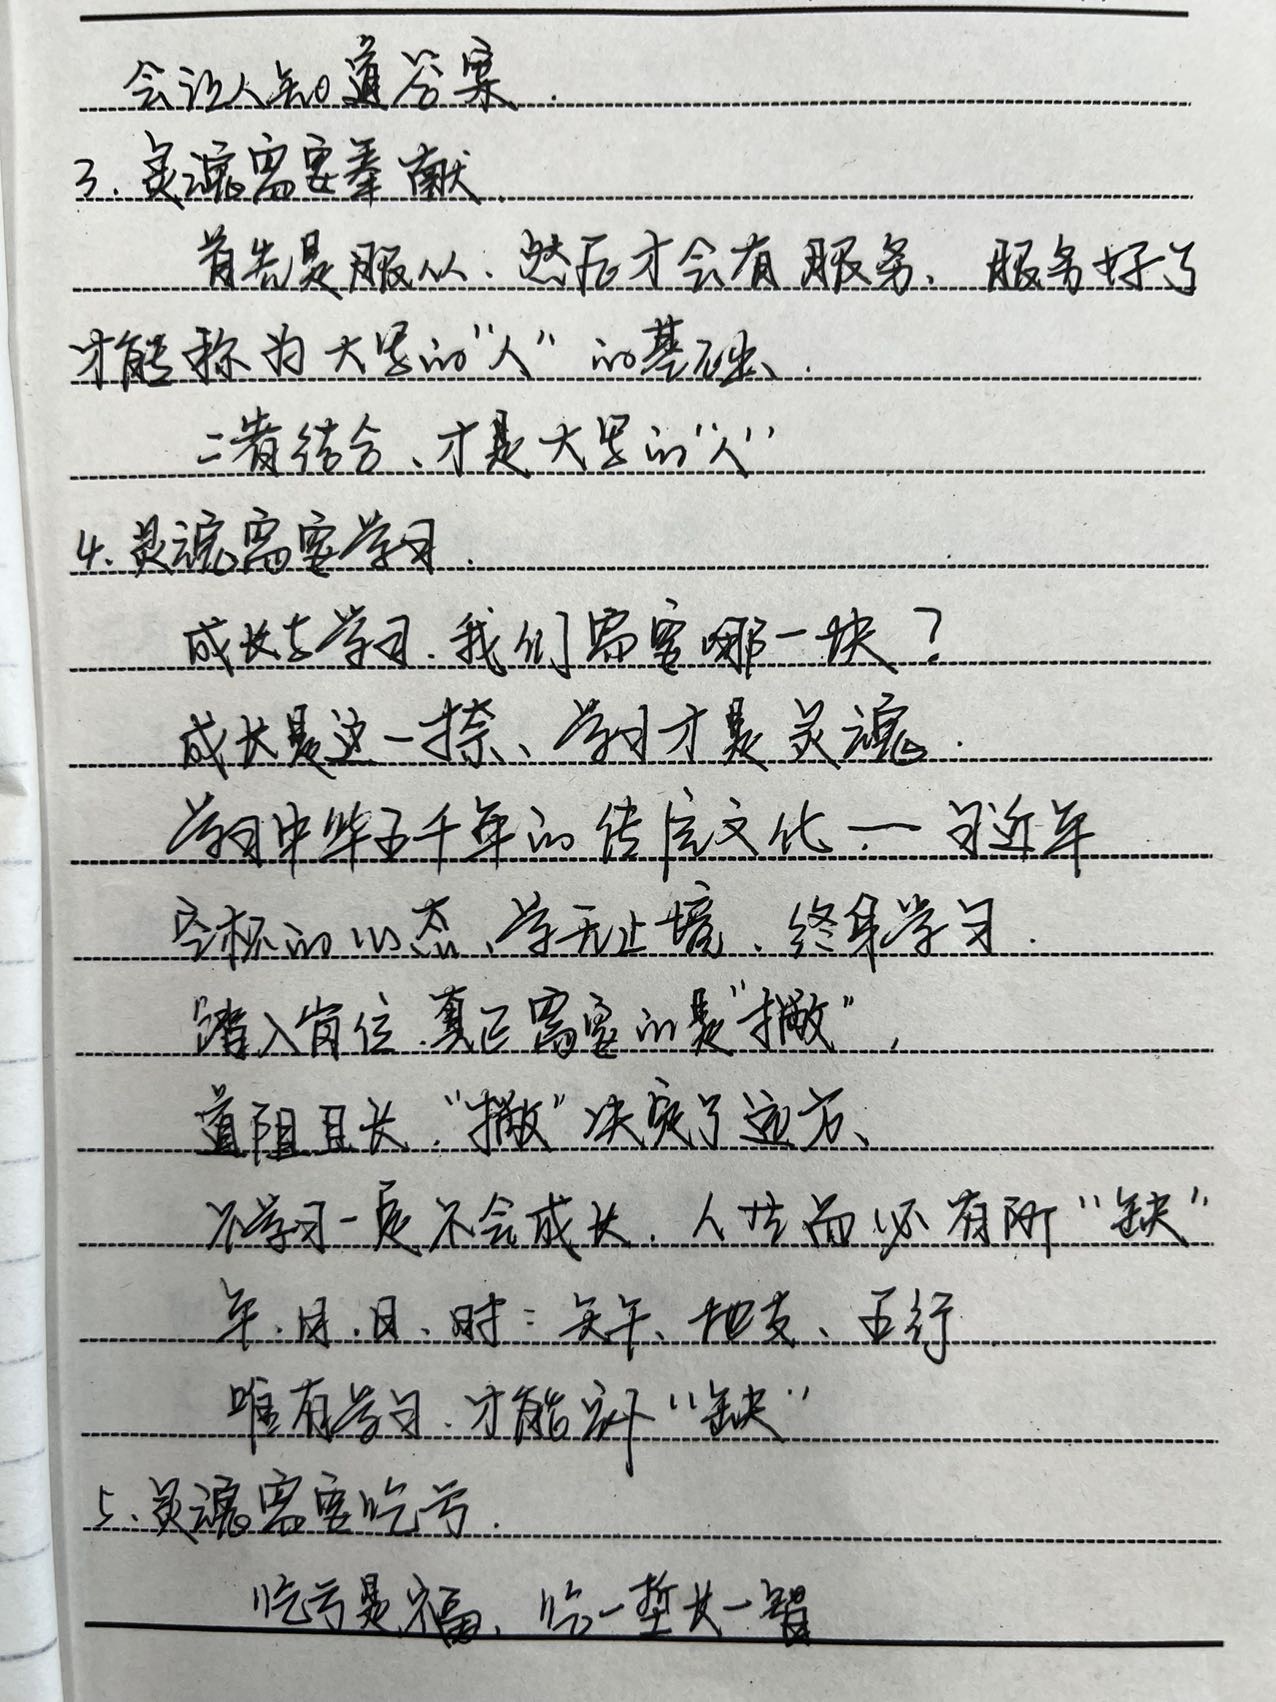 会让人知道答案.
3. 灵魂需要奉献.
首先是服从、然后才会有服务、服务好了
才能称为大写的“人”的基础、.
二者结合、才是大写的“人”
4. 灵魂需要学习.
成长与学习. 我们需要哪一块?
成长是这一捺、学习才是灵魂.
学习中华五千年的传统文化 — 习近平
空杯的心态、学无止境、终身学习.
踏入岗位、真正需要的是“撇”,
道阻且长. “撇”决定了远方、
不学习一定不会成长. 人生而必有所“缺”
年、月、日、时: 天干、地支、五行.
唯有学习. 才能补“缺”
5、灵魂需要吃亏.
吃亏是福、吃一堑长一智